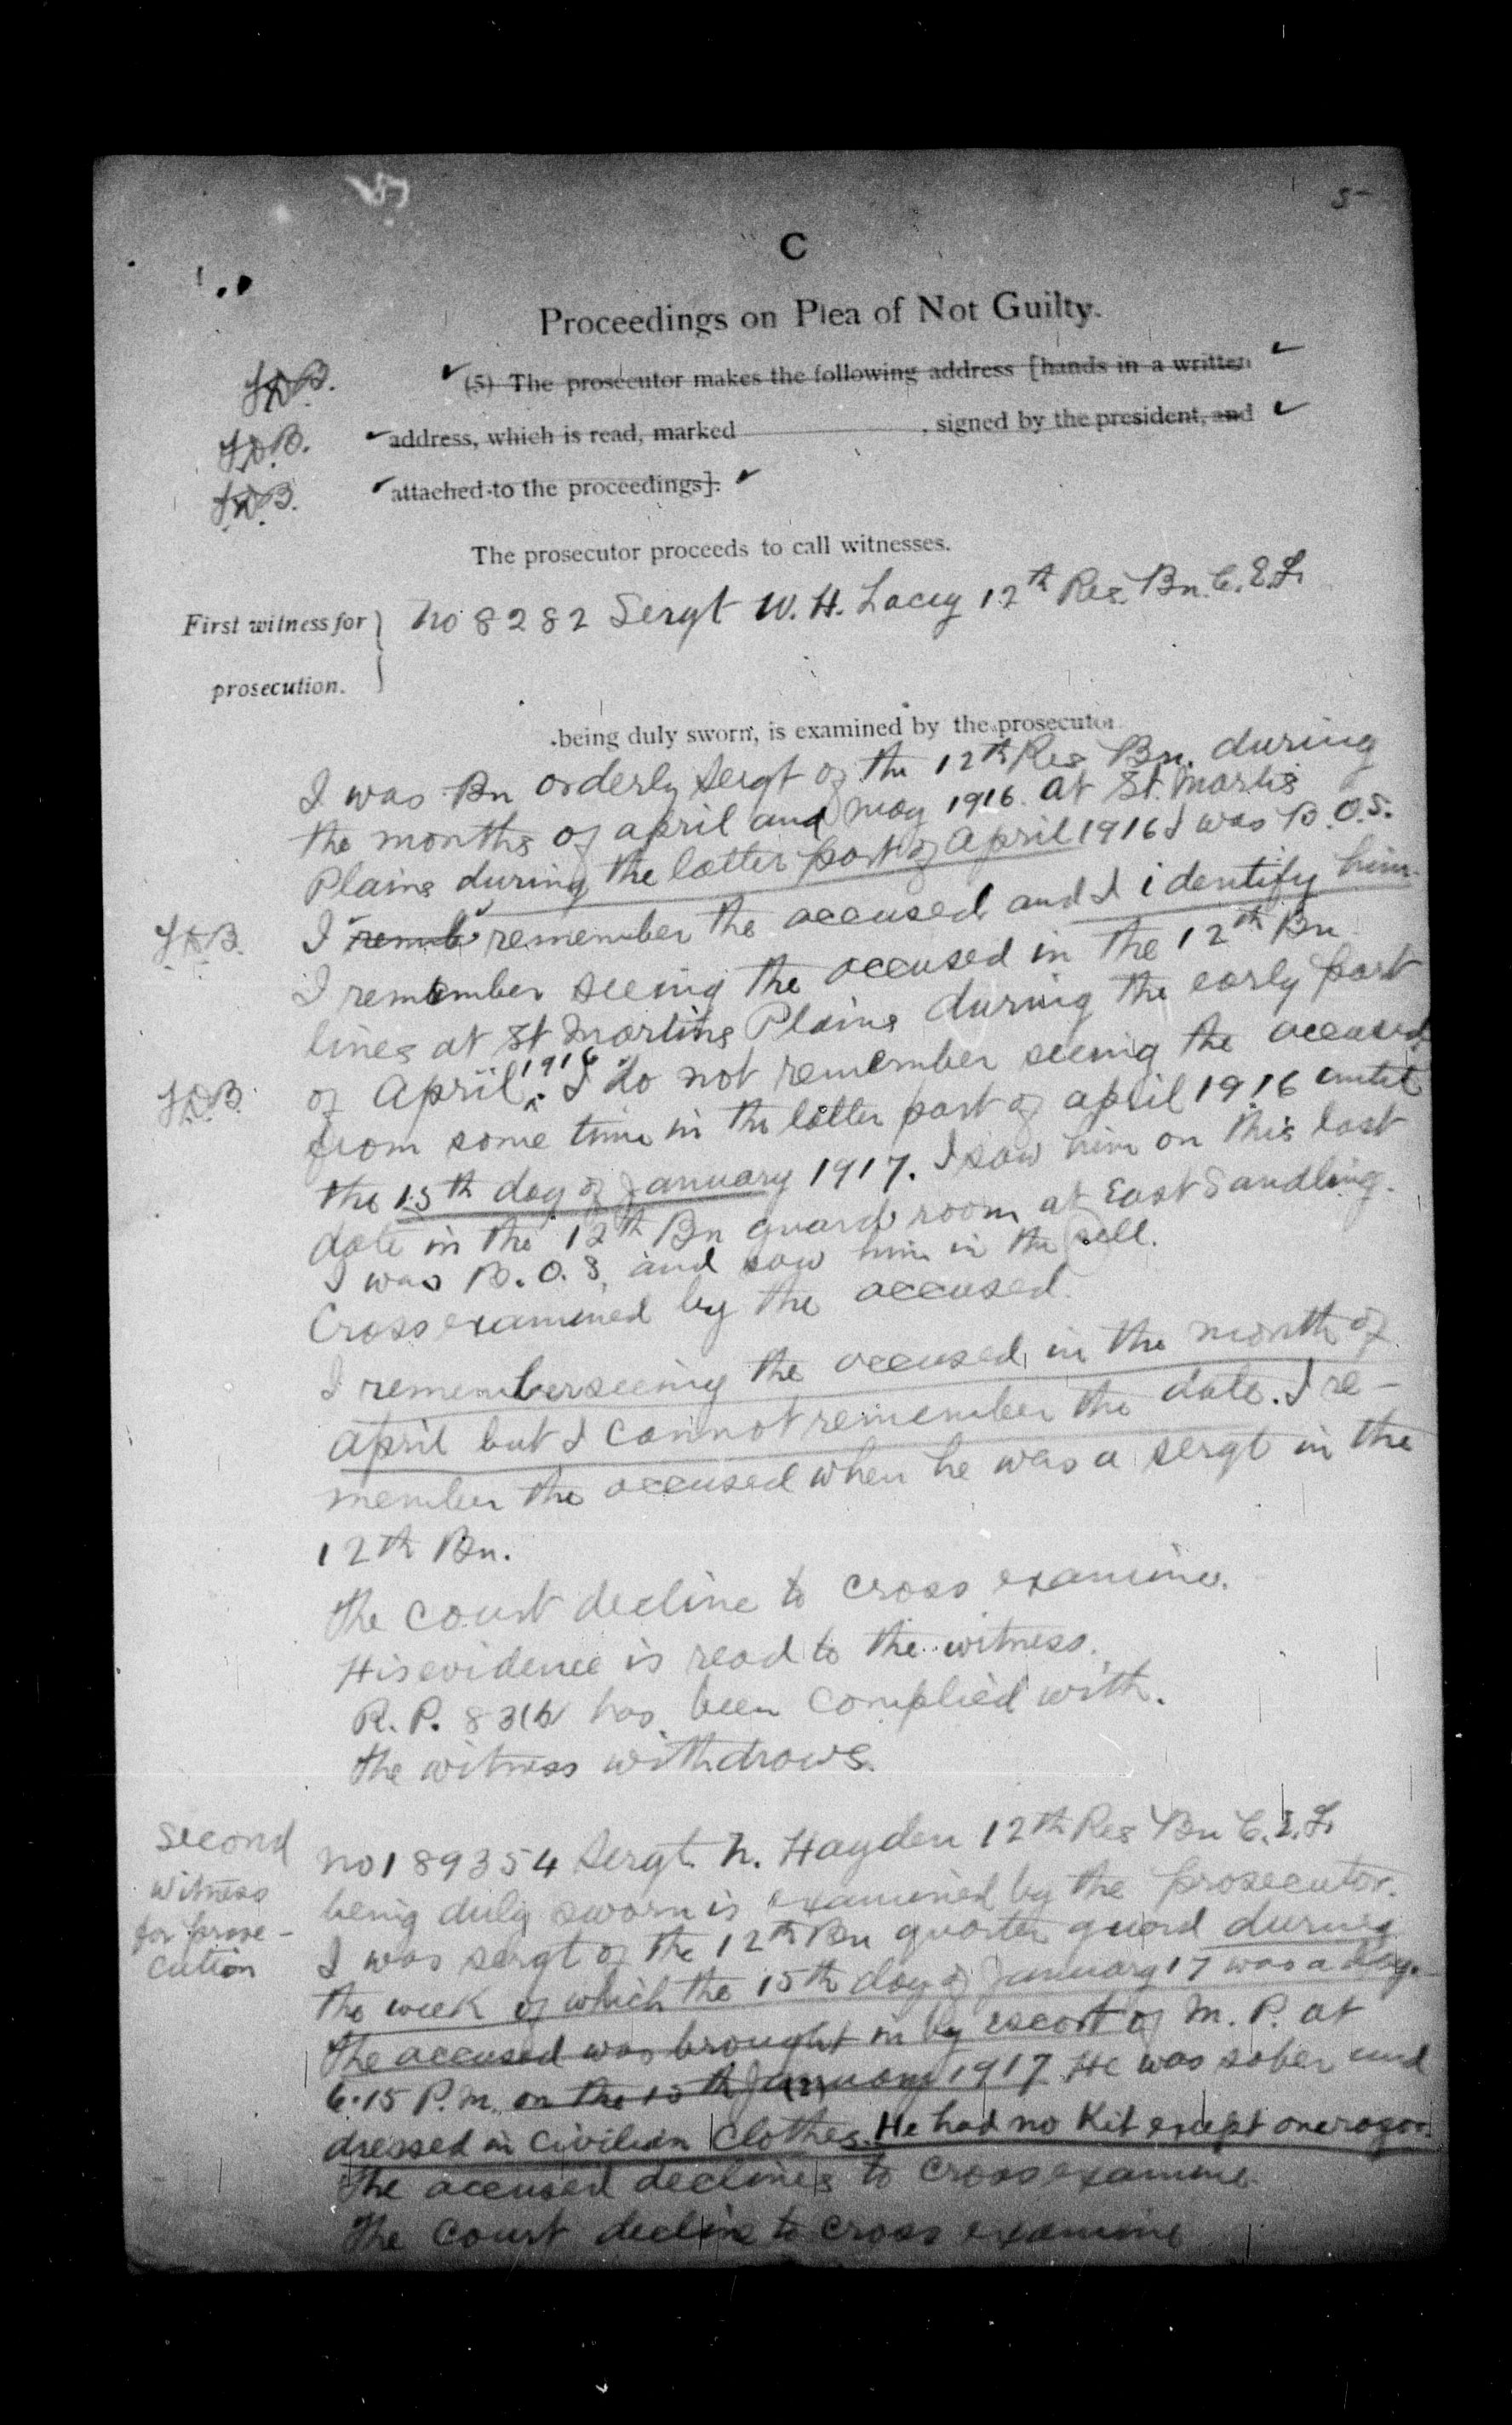 5
C
Proceedings on Plea of Not Guilty.
(5) The prosecutor makes the following address [hands in a written
address, which is read, marked , signed by the president, and
attached to the proceedings].
The prosecutor proceeds to call witnesses.
First witness for
prosecution.
No 8282 Sergt W. H. Lacey 12th Res Bn. C.E.F.
being duly sworn, is examined by the prosecutor
I was Bn orderly Sergt of the 12th Res Bn. during
the months of april and may 1916. at St. Martis
Plains during the latter part of april 1916 I was B.O.S.
I remb remember the accused and I identify him.
I remember seeing the accused in the 12th Bn
lines at St Martins Plains during the early part
of April 1916 I do not remember seeing the accused
from some time in the latter part of april 1916 until
the 15th day of January 1917. I saw him on this last
date in the 12th Bn guard room at East Sandling.
I was B.O.S. and saw him in the cell.
Cross examined by the accused.
I remember seeing the accused in the month of
april but I cannot remember the date. I re-
member the accused when he was a sergt in the
12th Bn.
The court decline to cross examine.
His evidence is read to the witness.
R.P. 83(b) has been complied with.
The witness withdraws.
Second
witness
for prose-
cution
No 189354 Sergt. N. Hayden 12th Res Bn C.E.F.
being duly sworn is examined by the prosecutor.
I was sergt of the 12th Bn quarter guard during
the week of which the 15th day of January 17 was a day.
The accused was brought in by escort of M.P. at
6.15 P.M. on the 15th January 1917 He was sober and
dressed in civilian clothes. He had no Kit except one razor.
The accused declines to cross examine.
The Court decline to cross examine